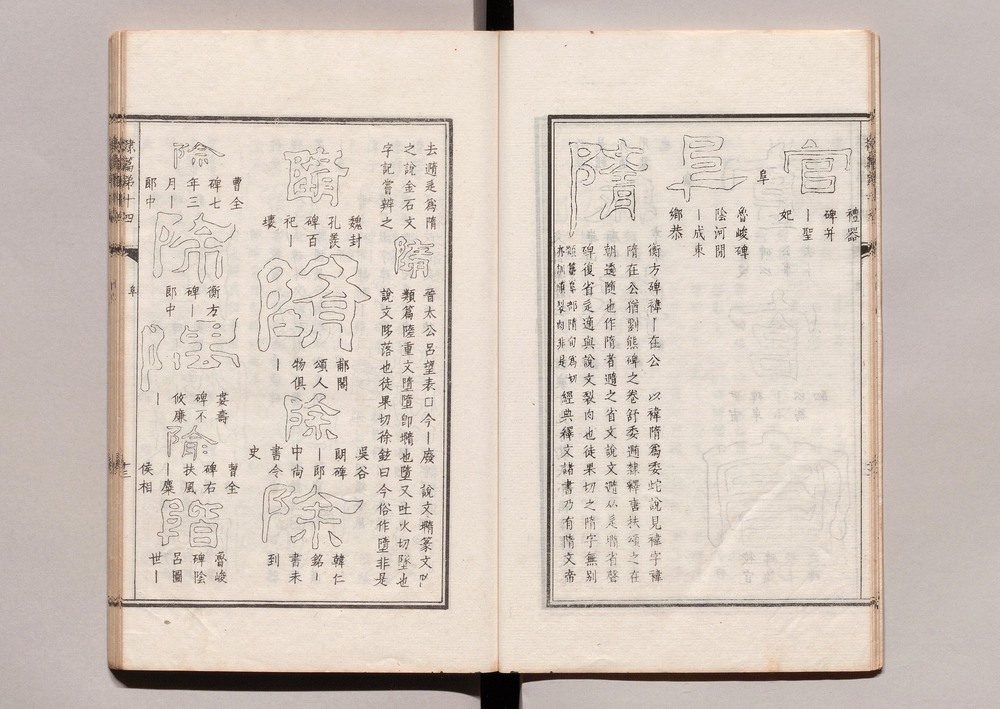 官
禮器
碑并
丨聖
妃
阜
𨸏
魯峻碑
陰河間
丨成東
鄉恭
隋
衡方碑禕丨在公 以禕隋爲委蛇說見禕字禕
隋在公猶劉熊碑之卷舒委遁隸釋唐扶頌之在
朝逶隨也作隋者遺之省文說文遺从辵䧟省聲
碑復省辵適與說文裂肉也徒果切之隋字無別
經典釋文諸書乃有隋文帝
去遁辵爲隋
之說金石文
字記嘗辨之
隋
晉太公呂望表口今丨廢 說文墮篆文阝
類篇陸重文墮墮卽墮也墮又吐火切墜也
說文陊落也徒果切徐鉉曰今俗作墮非是
隮
魏封
孔羨
碑百
祀丨
壞
隮
郙閣
頌人
物俱
丨
除
吳谷
朗碑
丨郎
中尚
書令
史
除
韓仁
銘丨
書未
到
除
曹全
碑七
年三
月丨
郎中
除
衡方
碑丨
郎中
隱
婁壽
碑不
攸廉
丨
隃
曹全
碑右
扶風
丨麋
侯相
階
魯峻
碑陰
呂圖
世丨
隸篇第十四
阜
十三